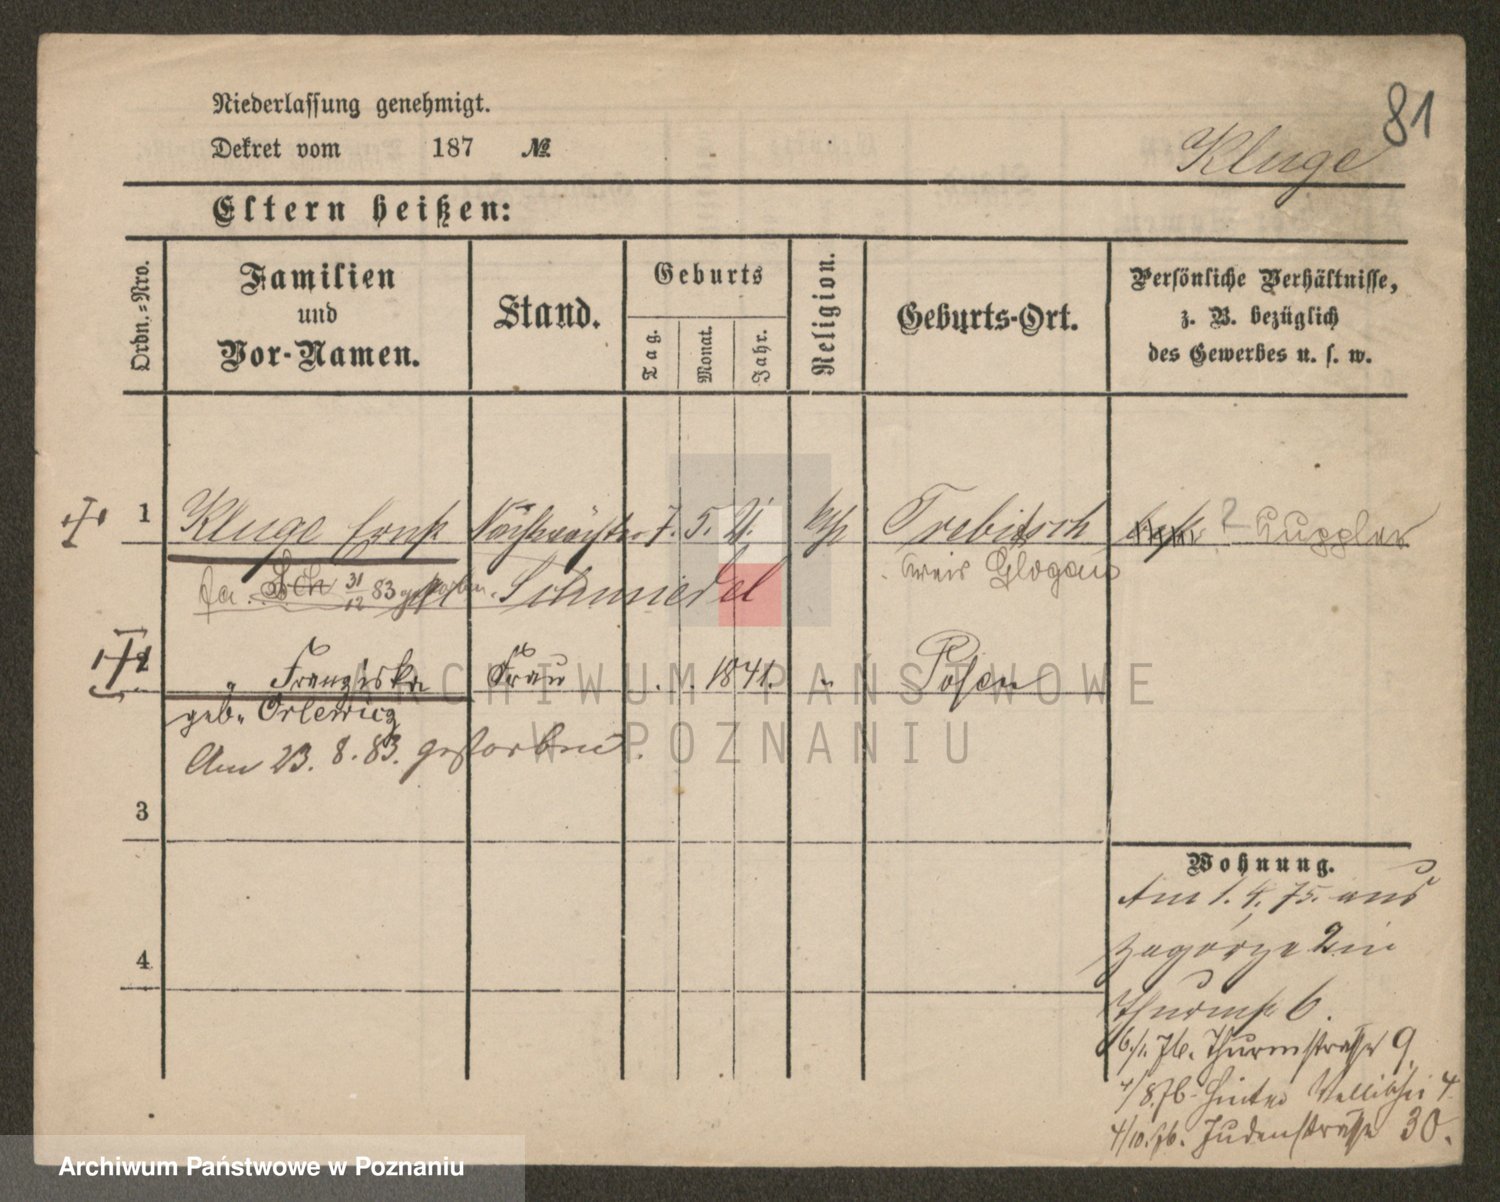 81
Niederlassung genehmigt.
Dekret vom 187 №
Kluge
Eltern heißen:
Ordn.=Nro.
Familien
und
Vor-Namen.
Stand.
Geburts
Tag.
Monat.
Jahr.
Religion.
Geburts-Ort.
Persönliche Verhältnisse,
z. B. bezüglich
des Gewerbes u. s. w.
1 Kluge Ernst Nachtwächter 7. 5. Trebitsch
Kreis Glogau
31/12 83 gestorben. Schmiedel
2 " Franziska Frau 1841. " Posen
geb. Orlewicz
Am 23. 8. 83. gestorben.
3
4
Wohnung.
Am 1. 4. 75. aus
Zagórze 2 in
Thurmstr 6.
6/1. 76. Thurmstraße 9.
4/8. 76. Hinter Wallischei 4.
4/10. 76. Judenstraße 30.
ARCHIWUM PAŃSTWOWE
W POZNANIU
Archiwum Państwowe w Poznaniu